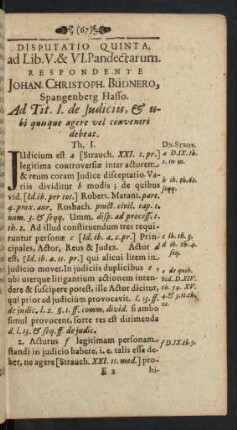 (67)
DISPUTATIO QUINTA,
ad Lib.V. & VI. Pandectarum.
RESPONDENTE
JOHAN. CHRISTOPH. BUDNERO,
Spangenberg Hasso.
Ad Tit. I. de Judiciis. & u-
bi quisque agere vel conveniri
debeat.
Th. I.
Judicium est a [Strauch. XXI. 1. pr.]
legitima controversiæ inter actorem
& reum coram Judice disceptatio. Va-
riis dividitur b modis; de quibus
vid. [Id. ib. per tot.] Robert. Marani. part.
4. prax. aur, Rosbach. proc. civil. cap. 1.
num. 3. & seqq. Umm. disp. ad process. 1.
th. 2. Ad illud constituendum tres requi-
runtur personæ c [Id. ib. a. 2. pr.] Prin-
cipales, Actor, Reus & Judex. Actor d
est, [Id. ib. a. 11. pr.] qui alicui litem in
judicio movet. In judiciis duplicibus e
ubi uterque litigantium actionem inten-
dere & suscipere potest, ille Actor dicitur,
qui prior ad judicium provocavit. l. 13. ff.
de judic. l. 2. §. 1. ff. comm. divid. si ambo
simul provocent, sorte res est dirimenda
d. l. 13. & seq. ff. de judic.
2. Acturus f legitimam personam
standi in judicio habere, i. e. talis esse de-
bet, ne agere [Strauch. XXI. 11. med.] pro-
E 2 hi-
Dn. Struv.
a D. IX. th.
b ib. th. 62.
seqq.
c ib. th. 3.
d ib. th. 4.
seq.
e de quib.
vid. D. XIV.
f D. IX. th. 5.